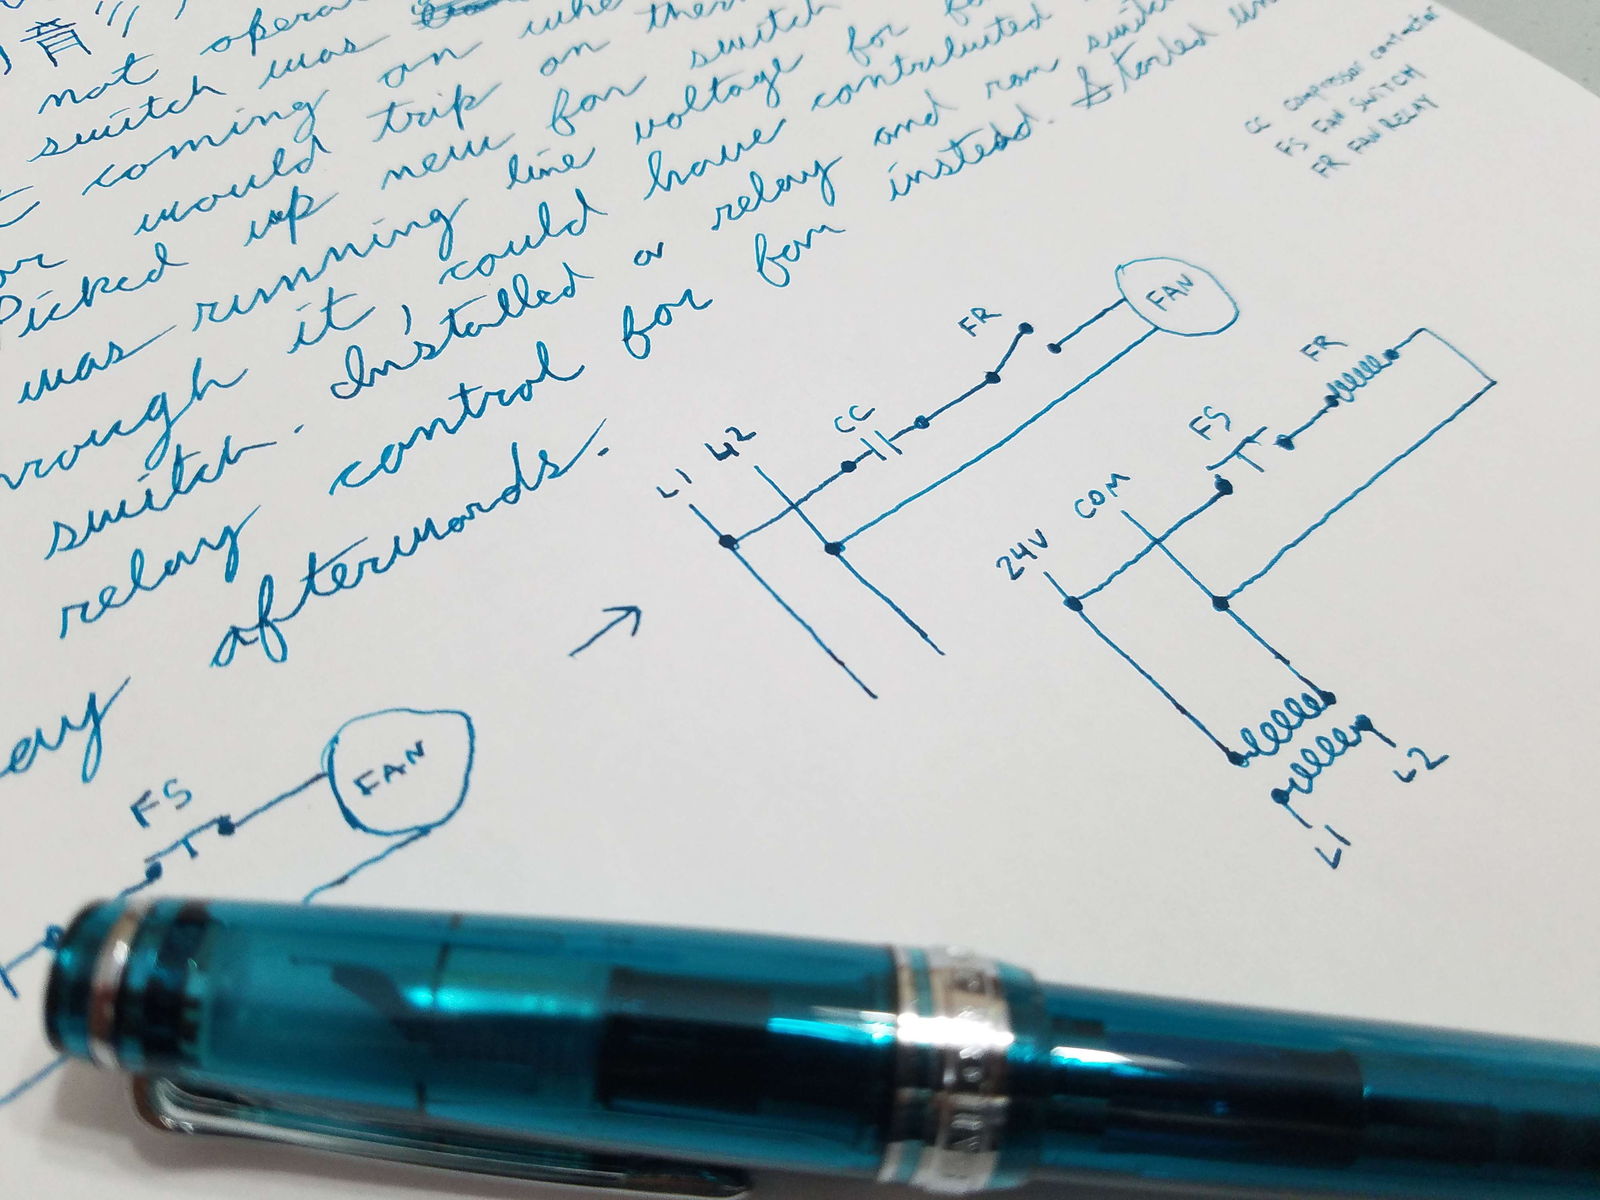 音
not opera
switch was
coming on whe
would trip on ther
Picked up new fan switch
was running line voltage for fa
through it, could have contributed
switch. Installed a relay and ran switch
relay control for fan instead. Started un
ay afterwards.
CC COMPRESSOR CONTACTOR
FS FAN SWITCH
FR FAN RELAY
L1 L2 CC FR FAN
24V COM FS FR
L1 L2
FS FAN